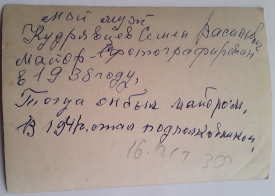 мой муж
Кудрявцев Семен Васильевич
Майор фотографирован
в 1938 году,
Тогда он был майором,
В 1941г. стал подполковником,